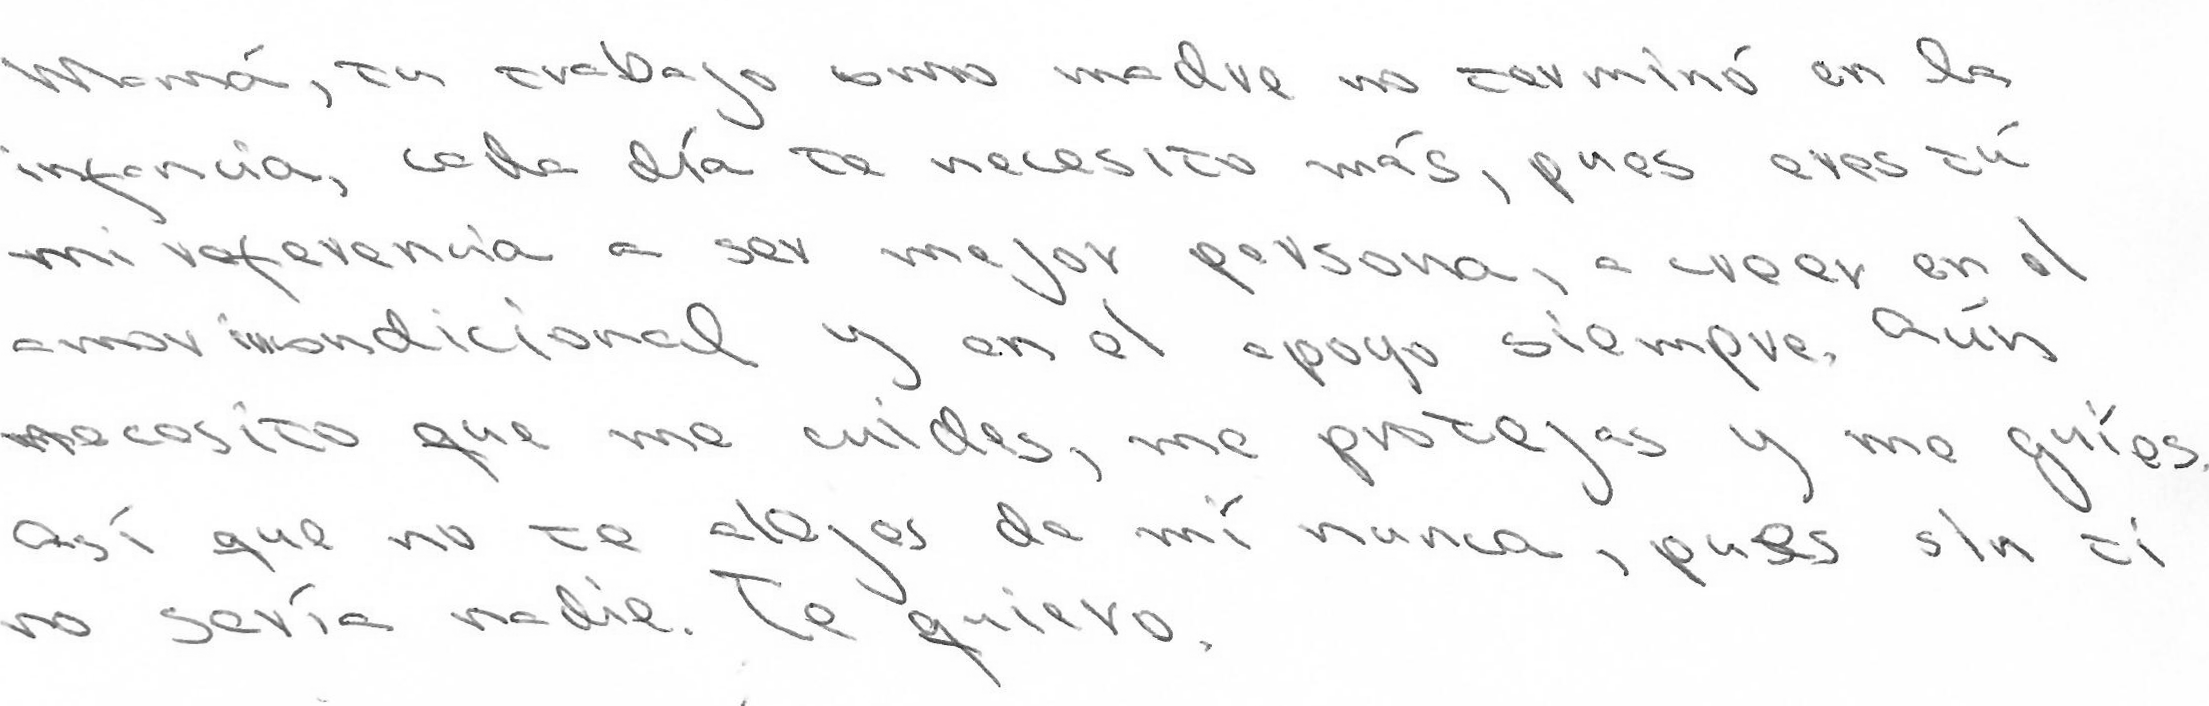 Mamá, tu trabajo como madre no terminó en la
infancia, cada día te necesito más, pues eres tú
mi referencia a ser mejor persona, a creer en el
amor incondicional y en el apoyo siempre. Aún
necesito que me cuides, me protejas y me guíes.
Así que no te alejes de mí nunca, pues sin ti
no sería nadie. Te quiero.